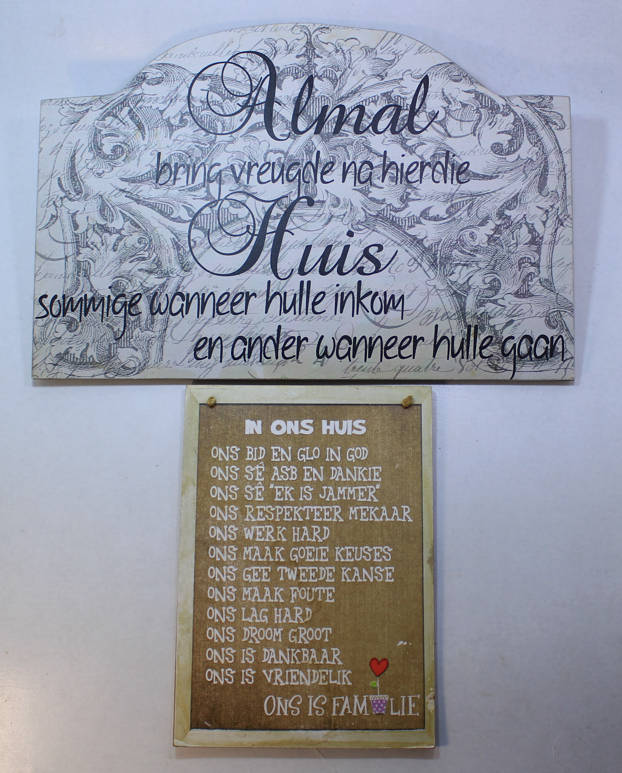 Almal
bring vreugde na hierdie
Huis
sommige wanneer hulle inkom
en ander wanneer hulle gaan
IN ONS HUIS
ONS BID EN GLO IN GOD
ONS SÊ ASB EN DANKIE
ONS SÊ "EK IS JAMMER"
ONS RESPEKTEER MEKAAR
ONS WERK HARD
ONS MAAK GOEIE KEUSES
ONS GEE TWEEDE KANSE
ONS MAAK FOUTE
ONS LAG HARD
ONS DROOM GROOT
ONS IS DANKBAAR
ONS IS VRIENDELIK
ONS IS FAMILIE